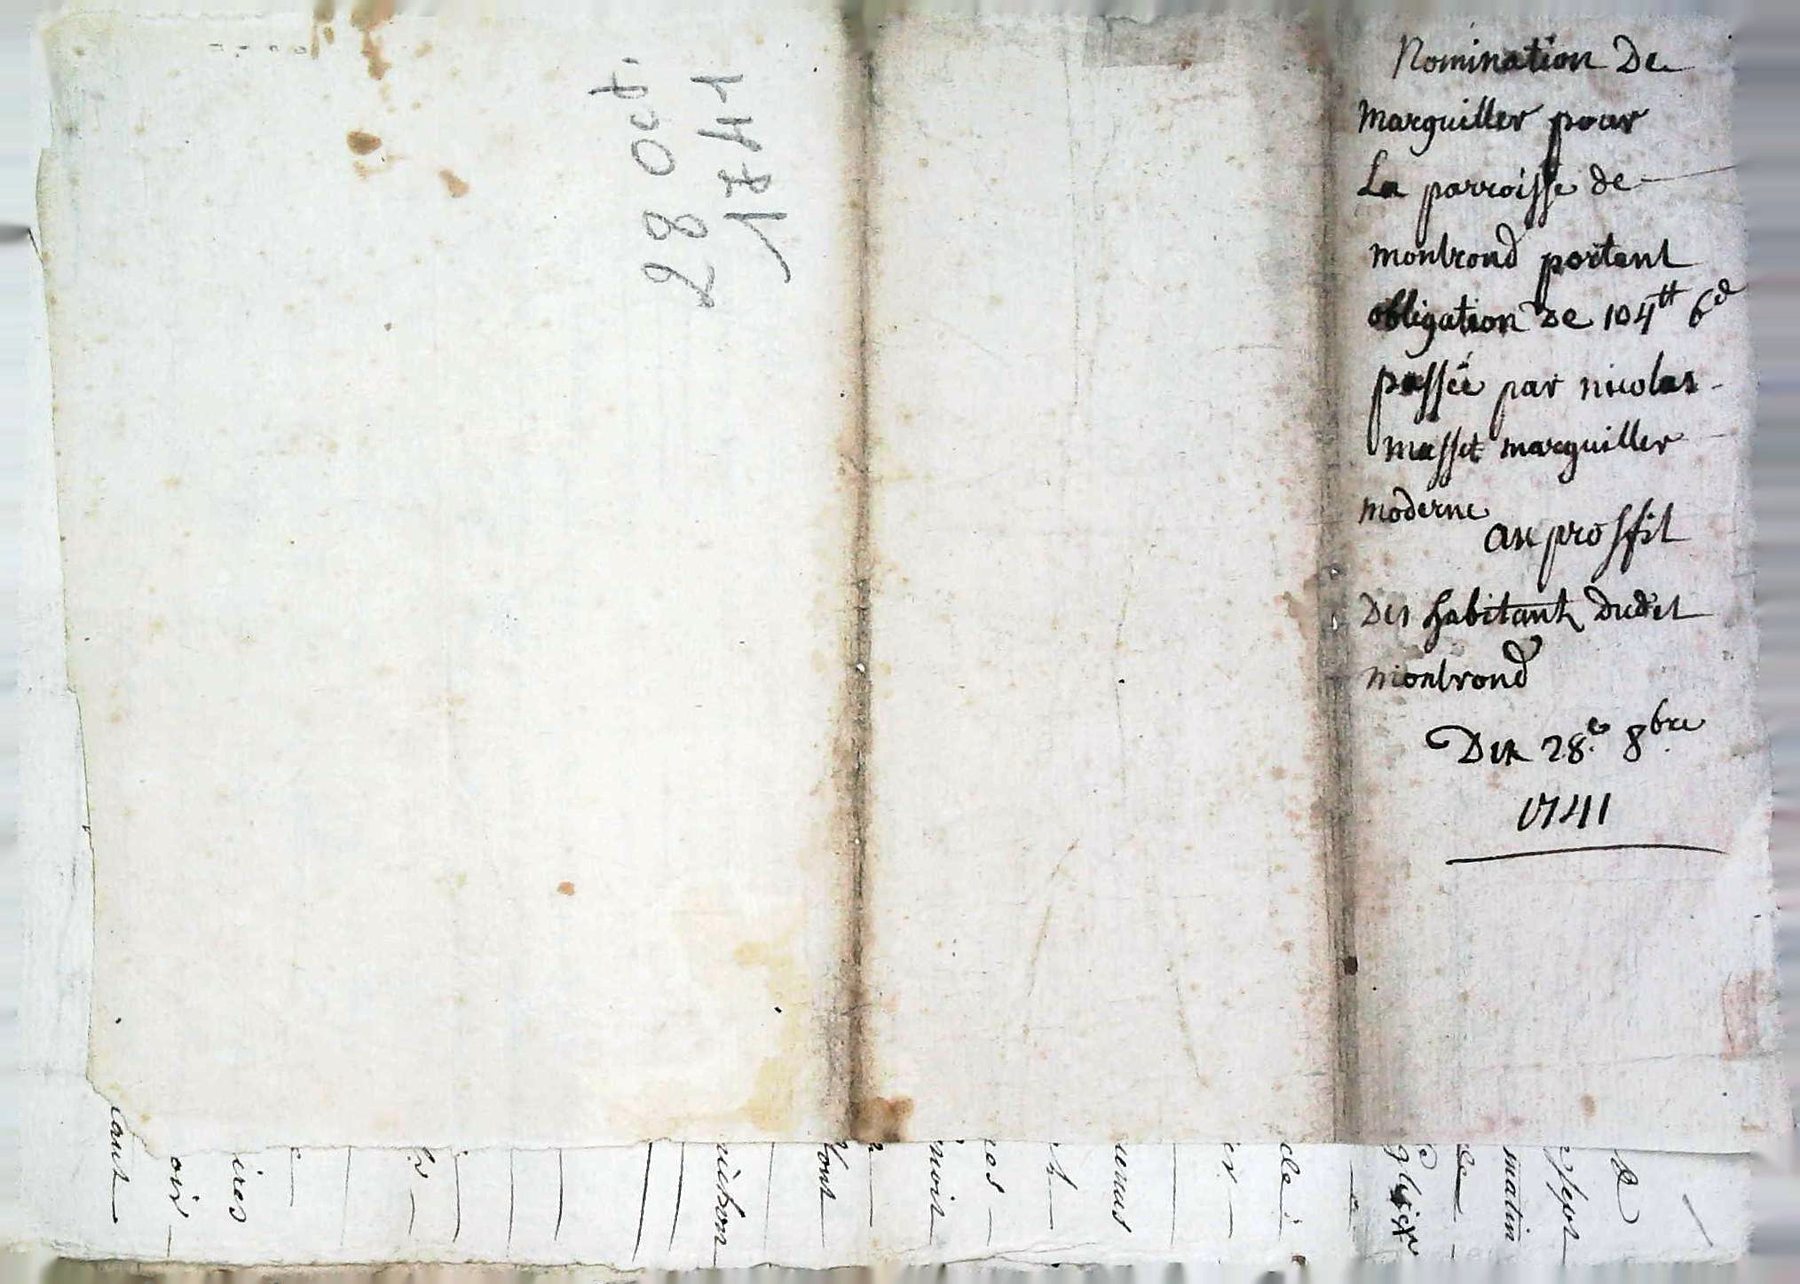 Nomination De
marguiller pour
La parroisse de
montrond portant
obligation de 104# 6d
passée par nicolas
masset marguiller
moderne
au proffit
Des habitant dudit
montrond
Du 28e 8bre
1741
28 oct.
1741